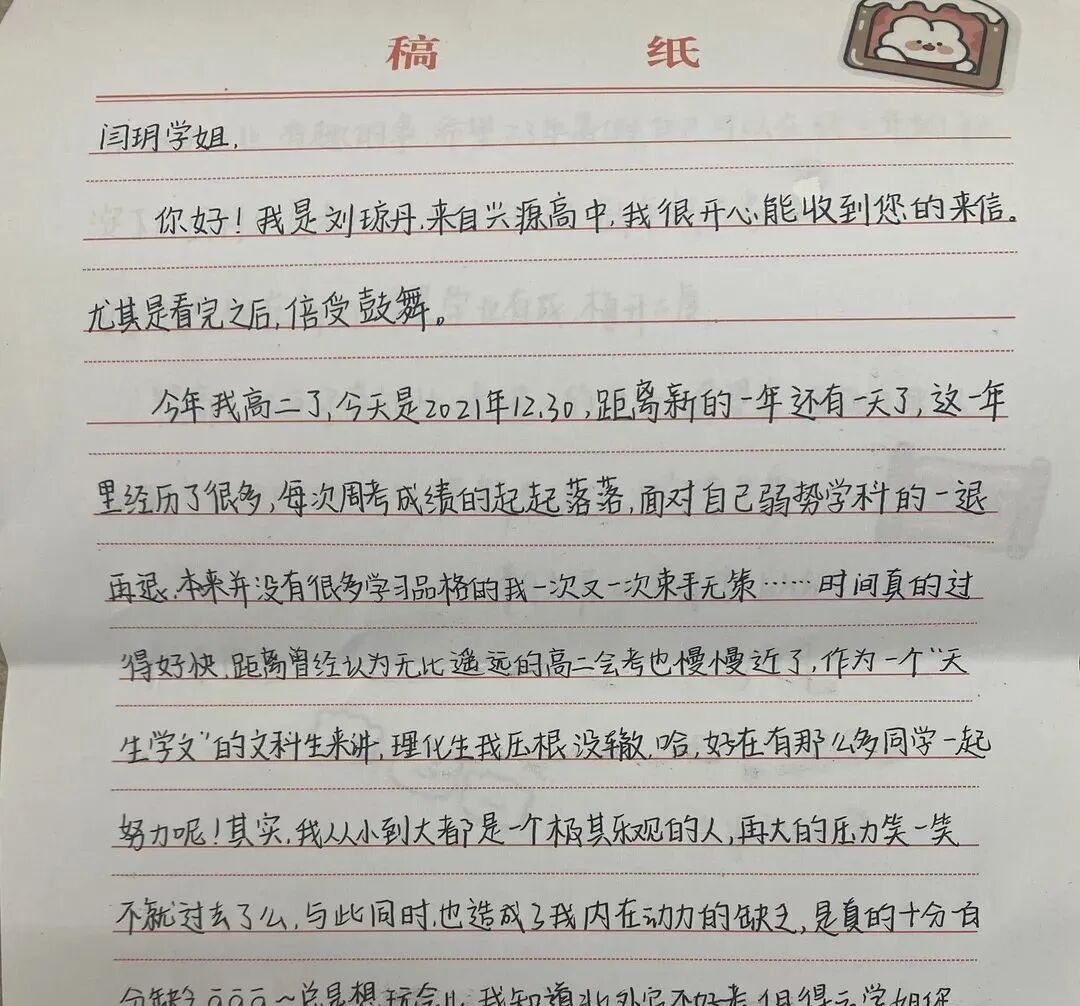 稿 纸
闫玥学姐,
你好!我是刘琼丹,来自兴源高中,我很开心能收到您的来信。
尤其是看完之后,倍受鼓舞。
今年我高二了,今天是2021年12.30,距离新的一年还有一天了,这一年
里经历了很多,每次周考成绩的起起落落,面对自己弱势学科的一退
再退,本来并没有很多学习品格的我一次又一次束手无策……时间真的过
得好快,距离曾经认为无比遥远的高二会考也慢慢近了,作为一个“天
生学文”的文科生来讲,理化生我压根没辙,哈,好在有那么多同学一起
努力呢!其实,我从小到大都是一个极其乐观的人,再大的压力笑一笑
不就过去了么,与此同时,也造成了我内在动力的缺乏,是真的十分百
总是想玩会儿,我知道北外它不好考,但得